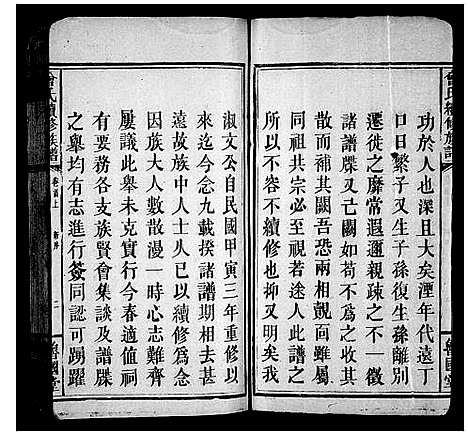 曾氏續修族譜
功於人也深且大矣湮年代遠丁
口日繁子又生子孫復生孫離別
遷徙之靡常遐邇親疎之不一徵
諸譜牒又亡闕如苟不爲之收其
散而補其闕吾恐兩相覿面雖屬
同祖共宗必至視若途人此譜之
所以不容不續修也抑又明矣我
魯國堂
淑文公自民國甲寅三年重修以
來迄今念九載揆諸譜期相去甚
遠故族中人士人已以續修爲念
因族大人衆散漫一時心志難齊
屢議此舉未克實行今春適值祠
有要務各支族賢會集談及譜牒
之舉均有志進行僉同認可踴躍
曾氏續修族譜
卷首上
新序
二
魯國堂